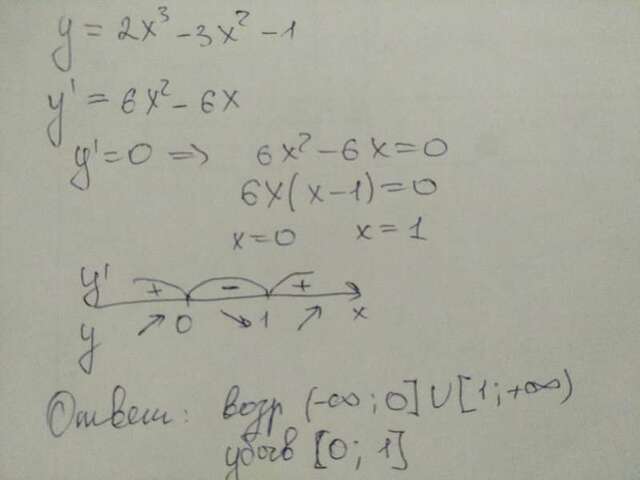 y = 2x³ - 3x² - 1
y' = 6x² - 6x
y' = 0 => 6x² - 6x = 0
6x(x - 1) = 0
x = 0 x = 1
y' + - +
y ↗ 0 ↘ 1 ↗ x
Ответ: возр (-∞; 0] ∪ [1; +∞)
убыв [0; 1]